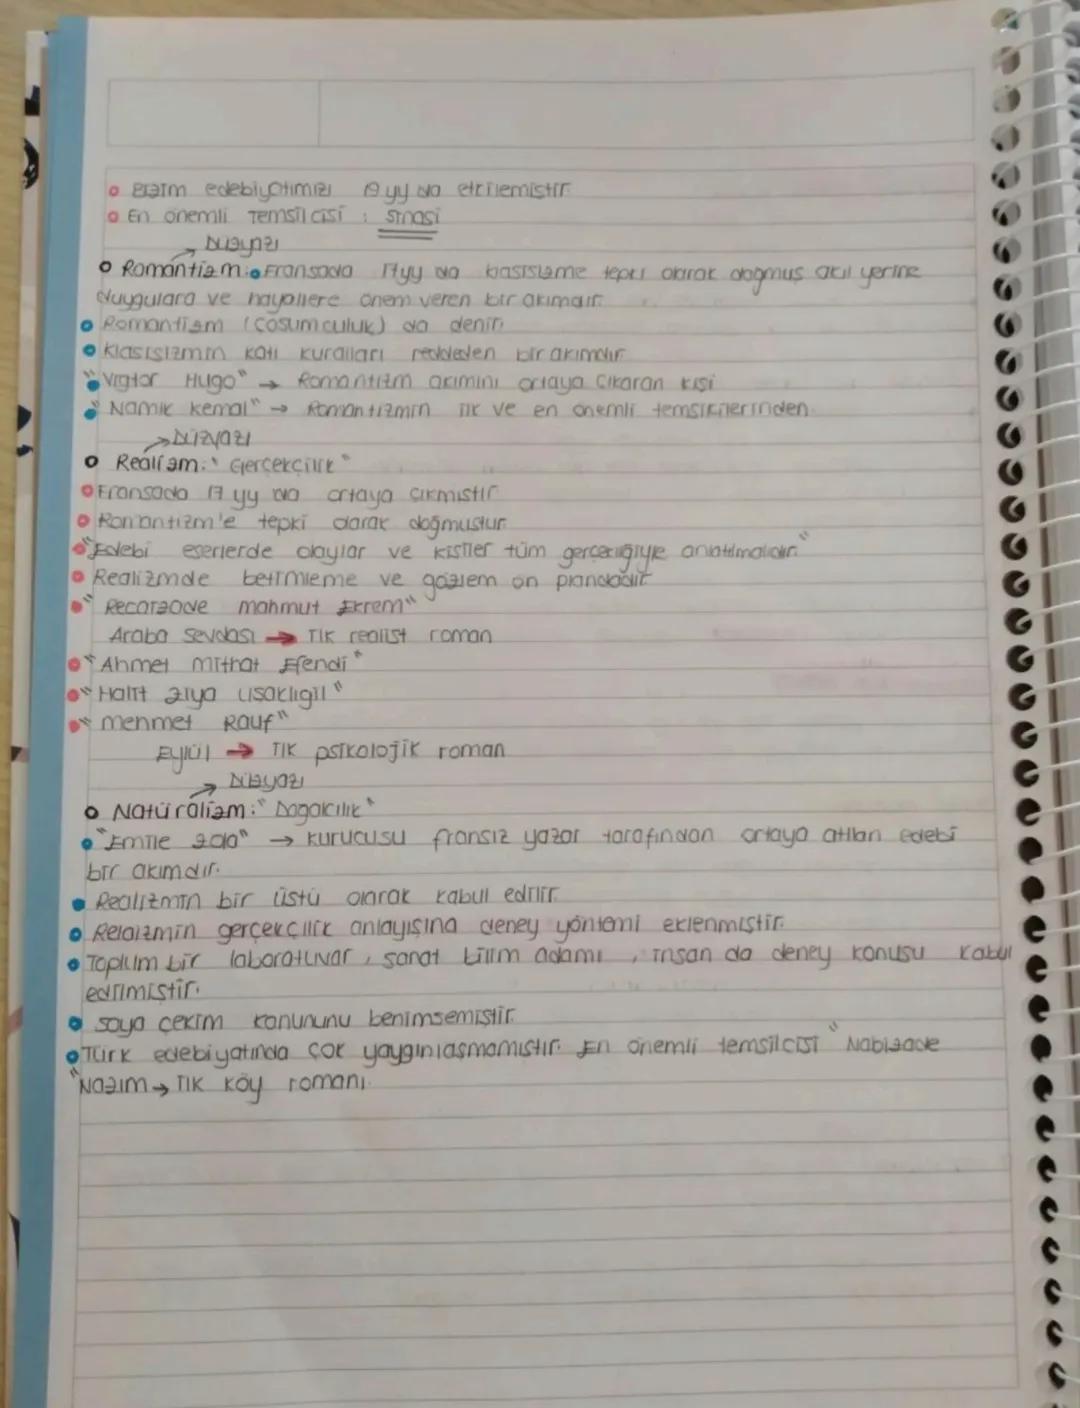 Bizim edebiyatımızı 19 yy da etkilemiştir.
En önemli temsilcisi : Şinasi
Düzyazı
Romantizm: Fransada 17yy da klasisizme tepki olarak doğmuş akıl yerine
duygulara ve hayallere önem veren bir akımdır.
Romantizm (coşumculuk) da denir.
Klasisizmin katı kuralları reddeden bir akımdır.
"Vigtor Hugo" → Romantizm akımını ortaya çıkaran kişi
"Namık Kemal" → Romantizmin ilk ve en önemli temsilcilerinden.
→Düzyazı
Realizm: "Gerçekçilik"
Fransada 17 yy da ortaya çıkmıştır
Romantizm'e tepki olarak doğmuştur.
"Edebi eserlerde olaylar ve kişiler tüm gerçekliğiyle anlatılmalıdır."
Realizmde betimleme ve gözlem ön plandadır
"Recaizade mahmut Ekrem"
Araba Sevdası → İlk realist roman
"Ahmet Mithat Efendi"
"Halit Ziya Uşaklıgil"
"mehmet Rauf"
Eylül → İlk psikolojik roman
→ Düzyazı
Natüralizm: "Dogalcılık"
"Emile Zola" → kurucusu fransız yazar tarafından ortaya atılan edebi
bir akımdır.
Realizmin bir üstü olarak kabul edilir.
Relaizmin gerçekçilik anlayışına deney yöntemi eklenmiştir.
Toplum bir laboratuvar, sanat bilim adamı, insan da deney konusu kabul
edilmiştir.
soya çekim kanununu benimsemiştir.
Türk edebiyatında çok yaygınlaşmamıştır. En önemli temsilcisi "Nabizade
Nazım" → İlk köy romanı.